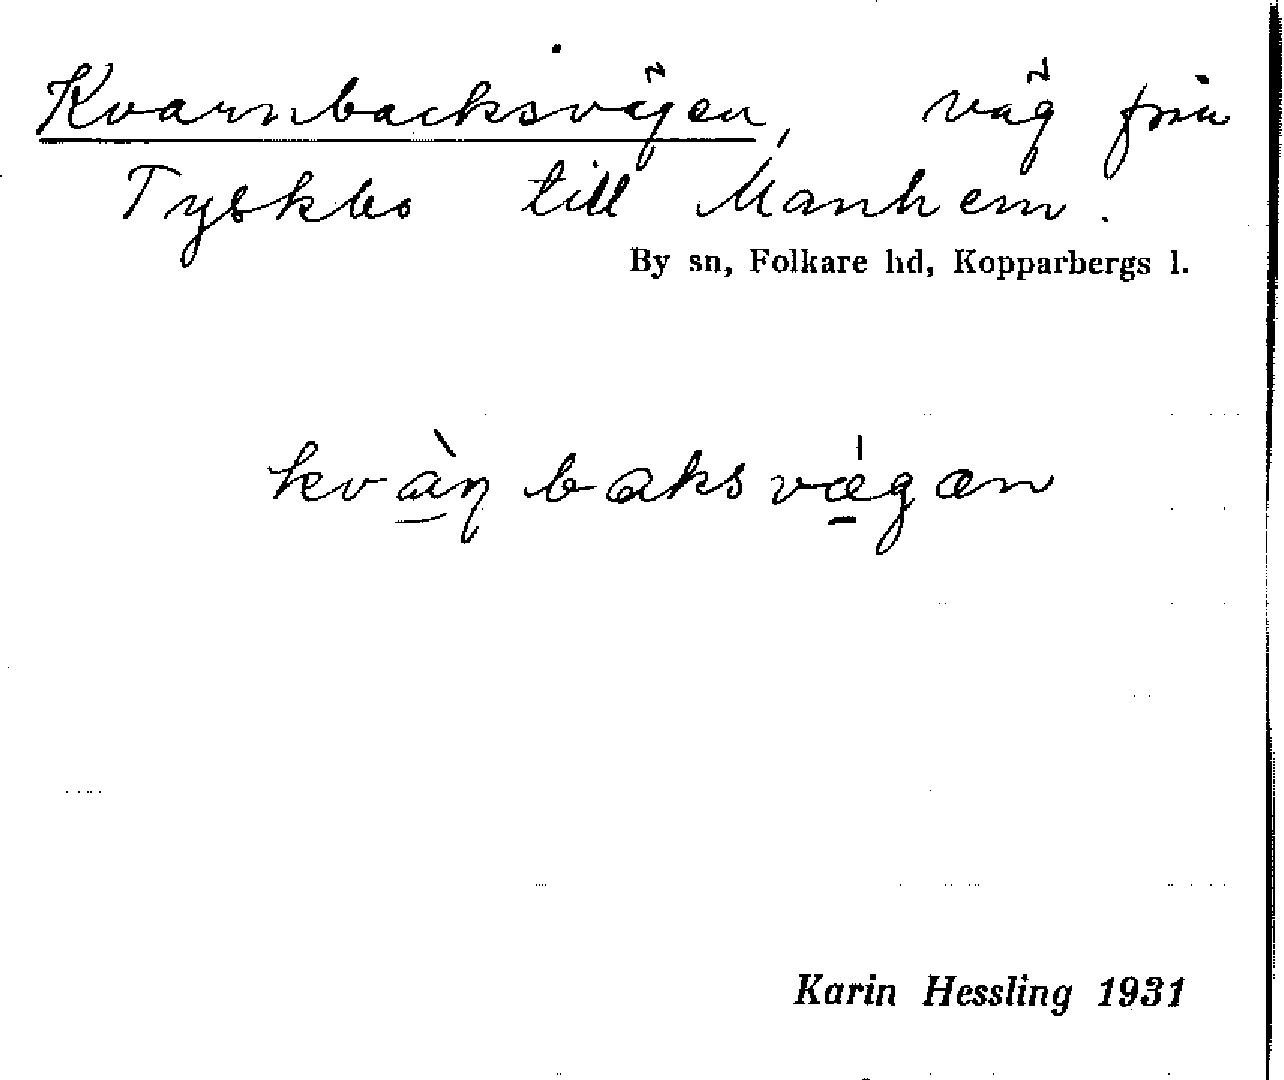 Kvarnbacksvägen, väg från
Tyskbo till Manhem.
By sn, Folkare hd, Kopparbergs l.
kvàɳbaksvǽgæn
Karin Hessling 1931